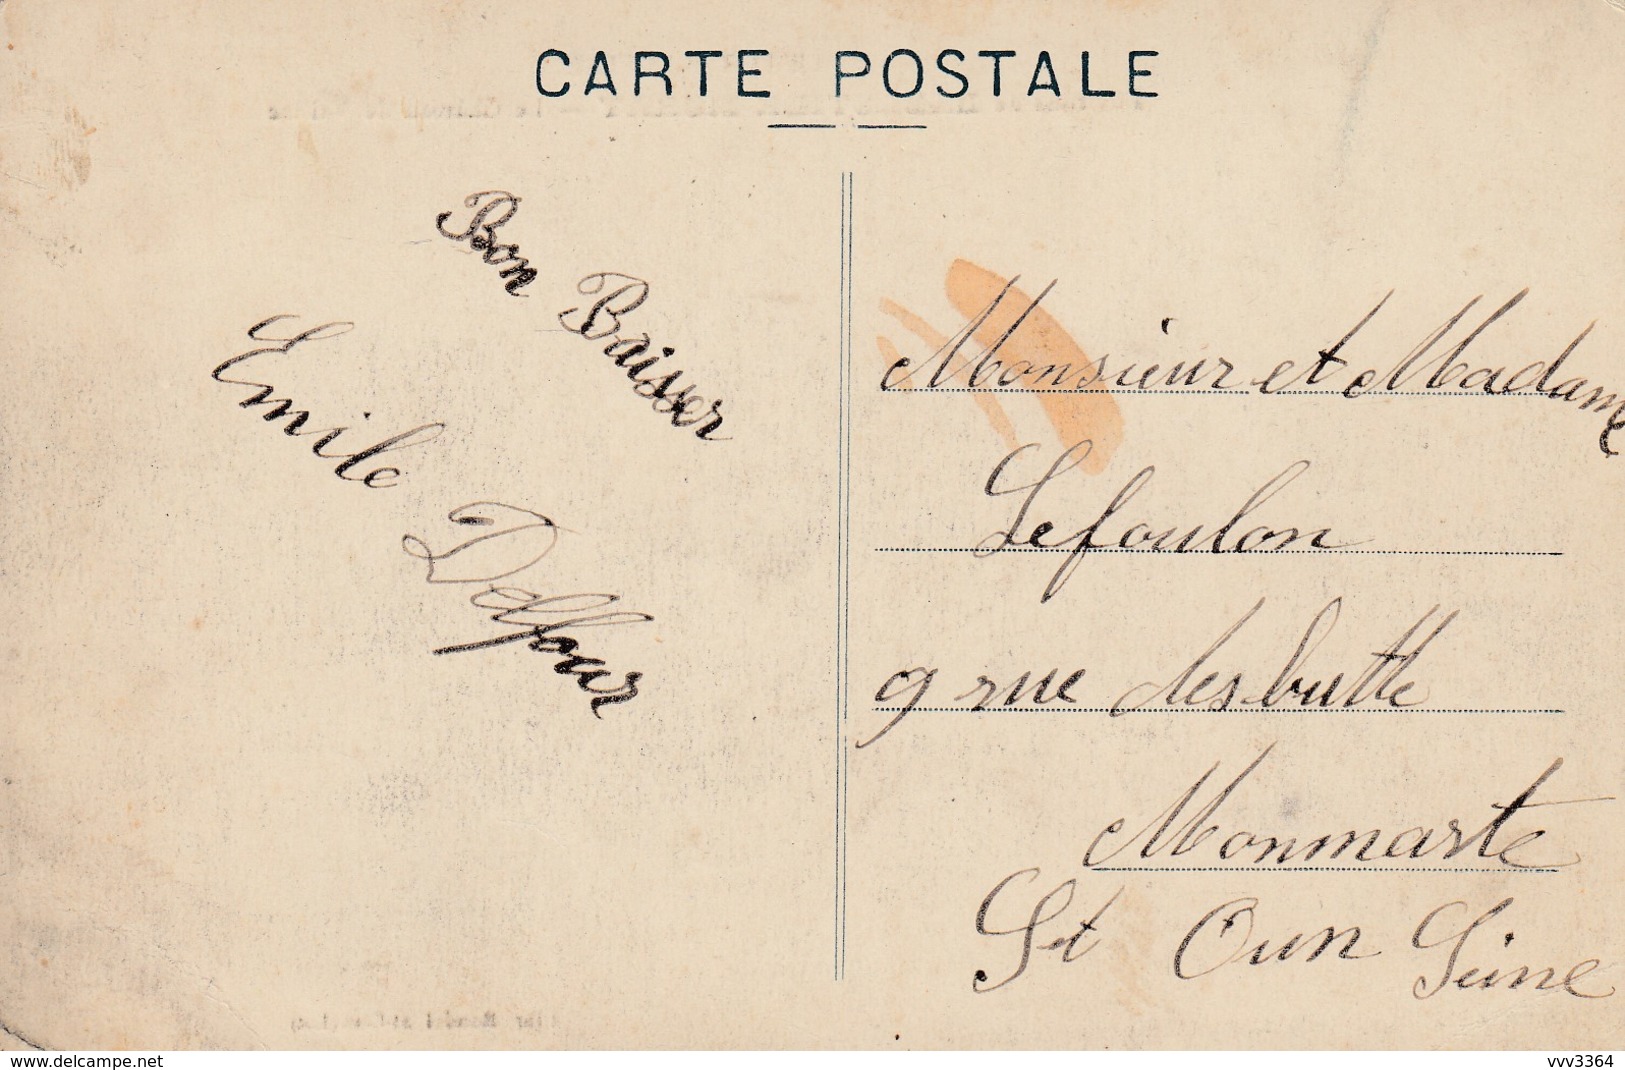 CARTE POSTALE
Bon Baisser
Emile Delfour
Monsieur et Madame
Lefoulon
9 rue des butte
Monmarte
St Oun Seine
www.delcampe.net
vvv3364